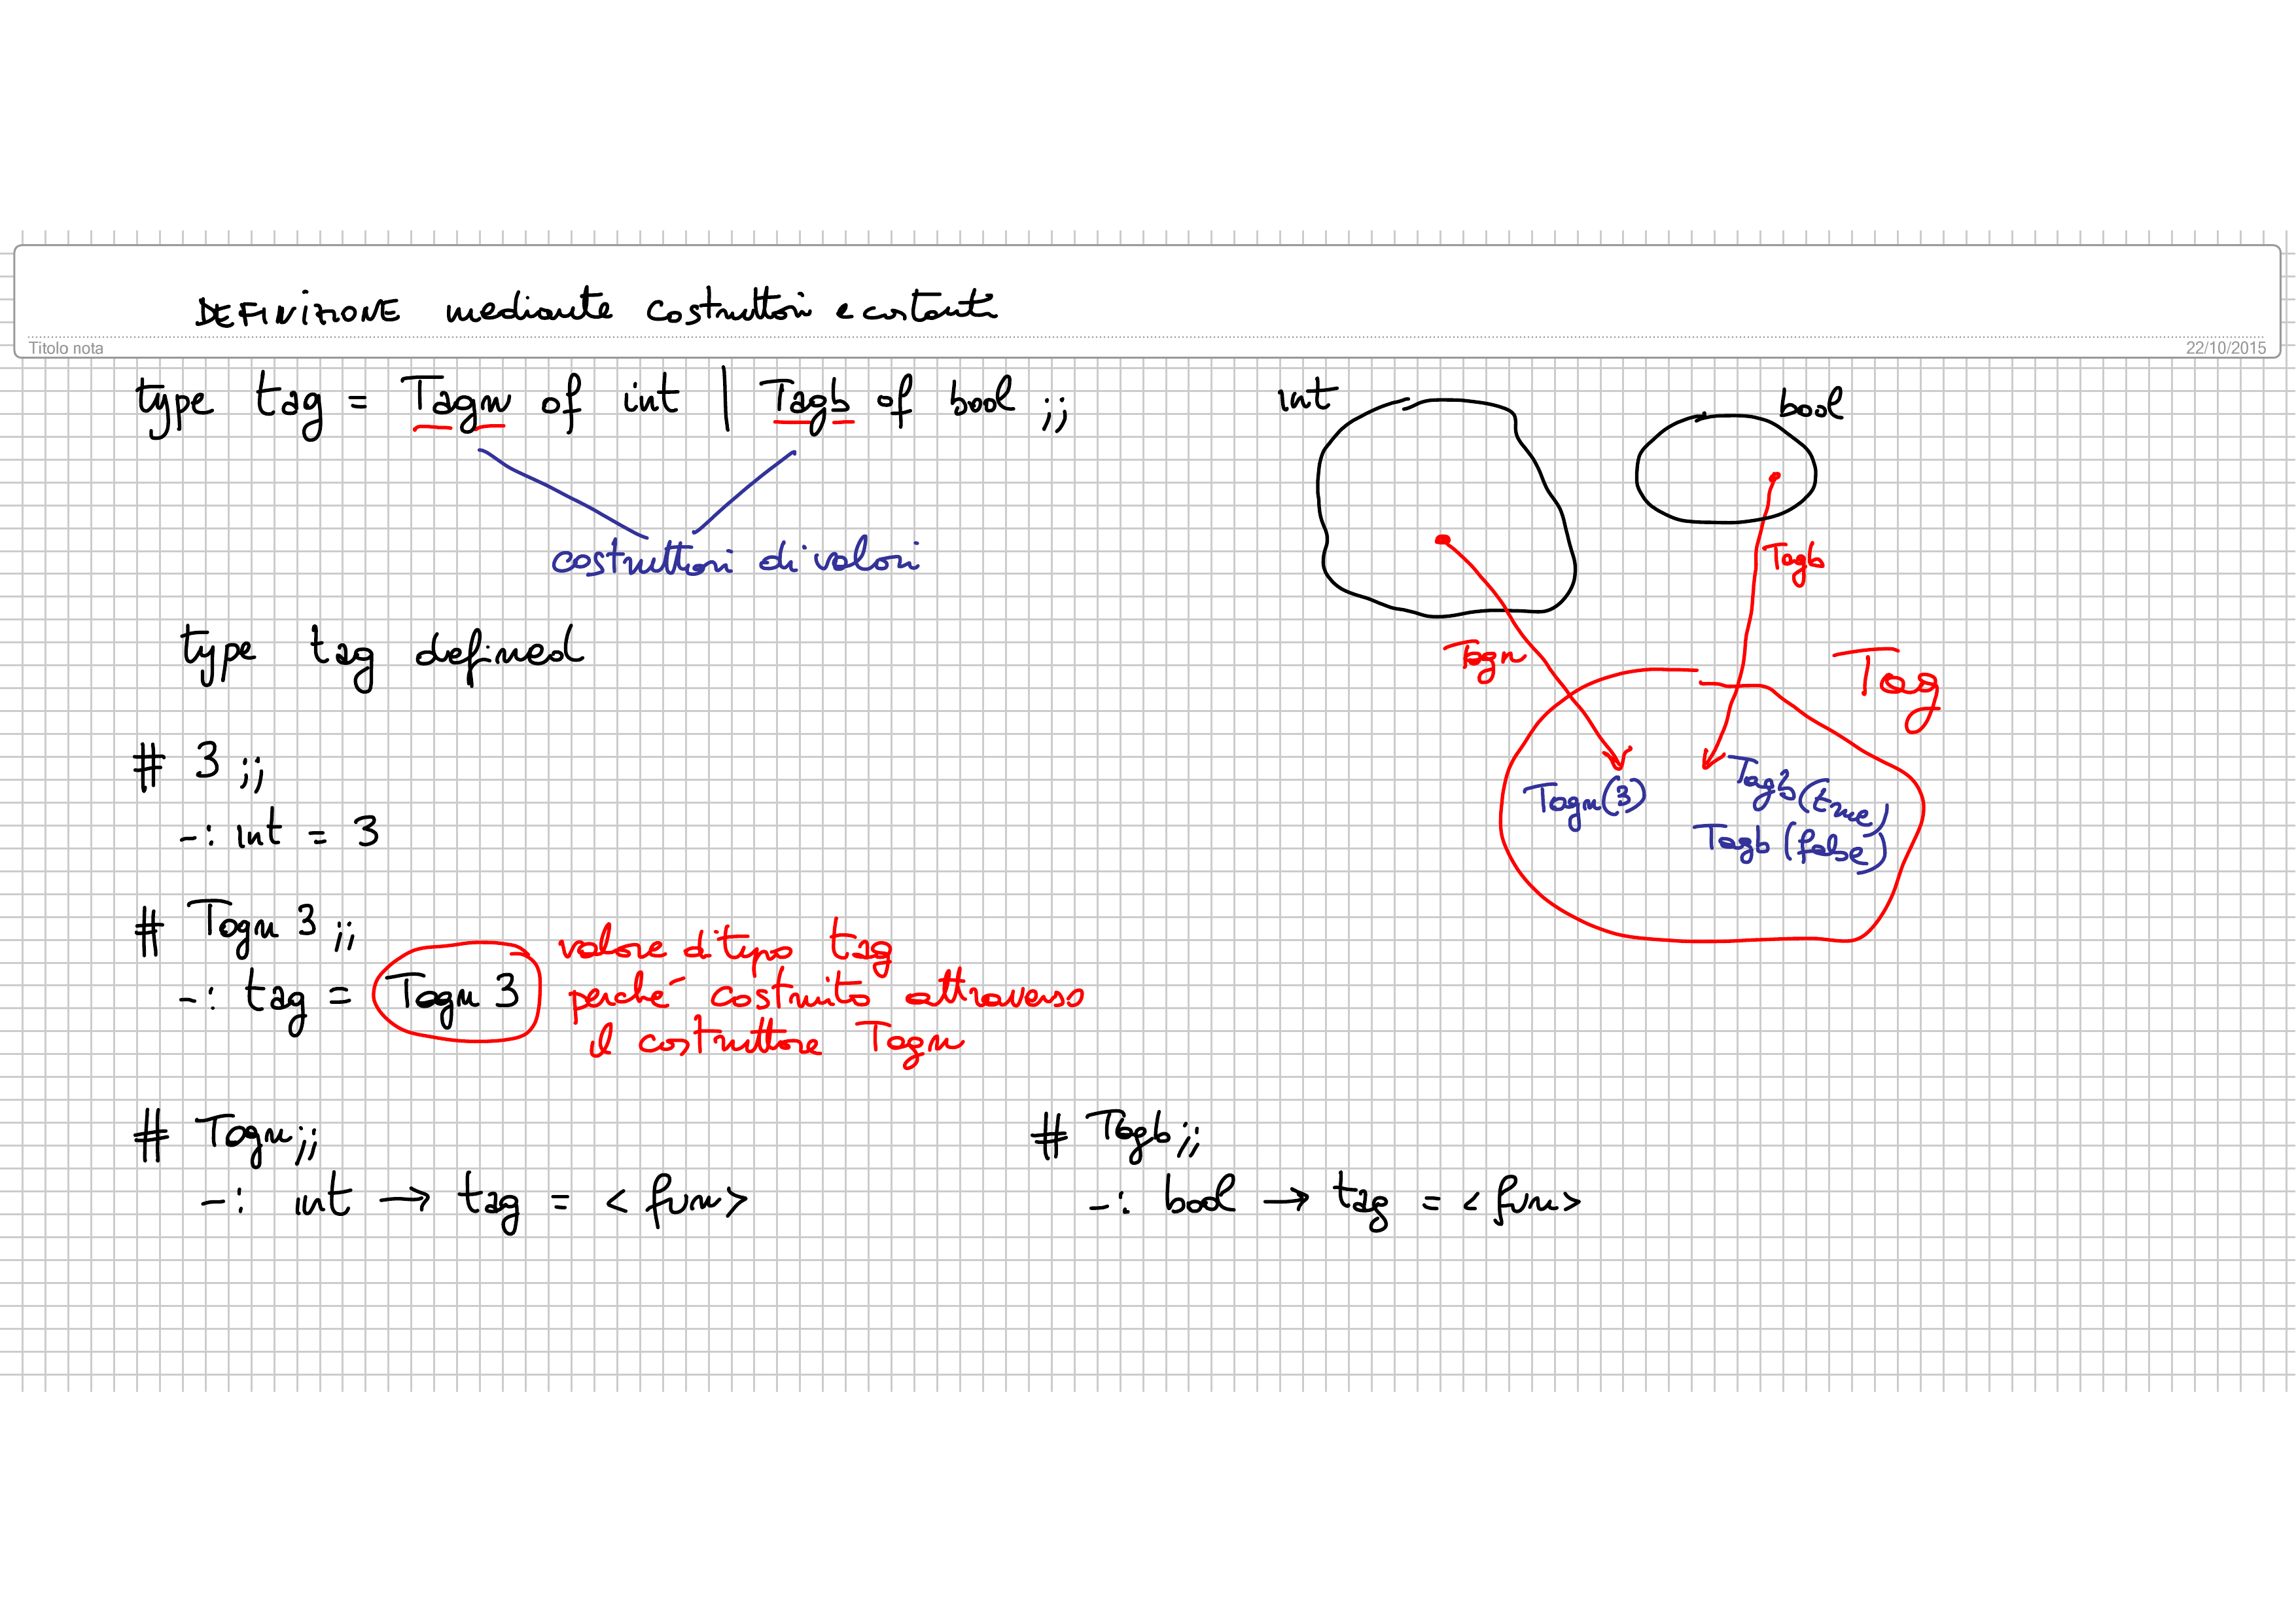 DEFINIZIONE mediante costruttori e costanti
Titolo nota
22/10/2015
type tag = Tagn of int | Tagb of bool ;;
costruttori di valori
type tag defined
# 3 ;;
-: int = 3
# Tagn 3 ;;
-: tag = Tagn 3
valore di tipo tag
perché costruito attraverso
il costruttore Tagn
# Tagn ;;
-: int → tag = <fun>
# Tagb ;;
-: bool → tag = <fun>
int
bool
Tagb
Tagn
Tag
Tagn(3)
Tagb(true)
Tagb(false)